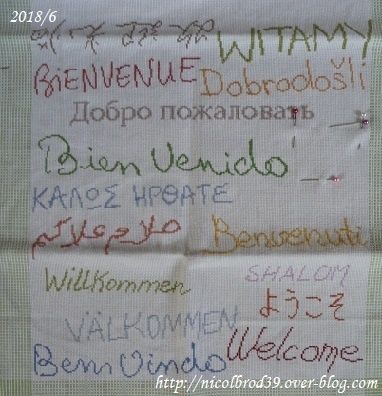 2018/6
WITAMY
BIENVENUE Dobrodošli
Добро пожаловать
Bien Venido
ΚΑΛΩΣ ΗΡΘΑΤΕ
Benvenuti
WillKommen SHALOM
ようこそ
VÄLKOMMEN
Bem Vindo Welcome
http://nicolbrod39.over-blog.com